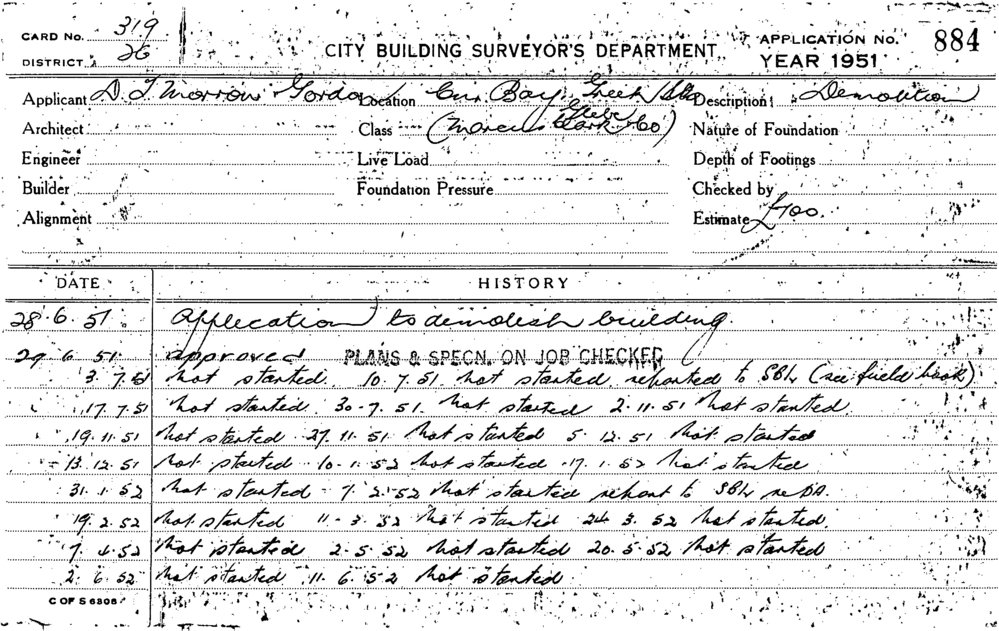 CARD No. 319
DISTRICT 26
CITY BUILDING SURVEYOR'S DEPARTMENT
APPLICATION No. 884
YEAR 1951
Applicant D. T Morrow & Gordon Location Cnr. Bay, Greek Sts Description Demolition
Glebe
Architect Class (Marcus Clark & Co) Nature of Foundation
Engineer Live Load Depth of Footings
Builder Foundation Pressure Checked by
Alignment Estimate £400.
DATE HISTORY
28.6.51. Application to demolish building
29 6 51 approved PLANS & SPECN. ON JOB CHECKED
3.7.51 Not started. 10.7.51 Not started reported to SBI (see field book)
17.7.51 Not started. 30.7.51. Not started 2.11.51 Not started
19.11.51 Not started 27.11.51 Not started 5.12.51 Not started
13.12.51 Not started 10.1.52 Not started 17.1.52 Not started
31.1.52 Not started 7.2.52 Not started report to SBI re DA.
19.2.52 Not started 11.3.52 Not started 24 3.52 Not started.
7.4.52 Not started 2.5.52 Not started 20.5.52 Not started
2.6.52 Not started 11.6.52 Not started
C OF S 6306